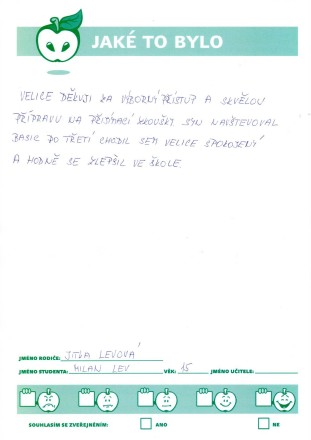 JAKÉ TO BYLO
VELICE DĚKUJI ZA VÝBORNÝ PŘÍSTUP A SKVĚLOU
PŘÍPRAVU NA PŘIJÍMACÍ ZKOUŠKY. SYN NAVŠTĚVOVAL
BASIC PO TŘETÍ CHODIL SEM VELICE SPOKOJENÝ
A HODNĚ SE ZLEPŠIL VE ŠKOLE.
JMÉNO RODIČE: JITKA LEVOVÁ
JMÉNO STUDENTA: MILAN LEV VĚK: 15 JMÉNO UČITELE:
SOUHLASÍM SE ZVEŘEJNĚNÍM: ANO NE